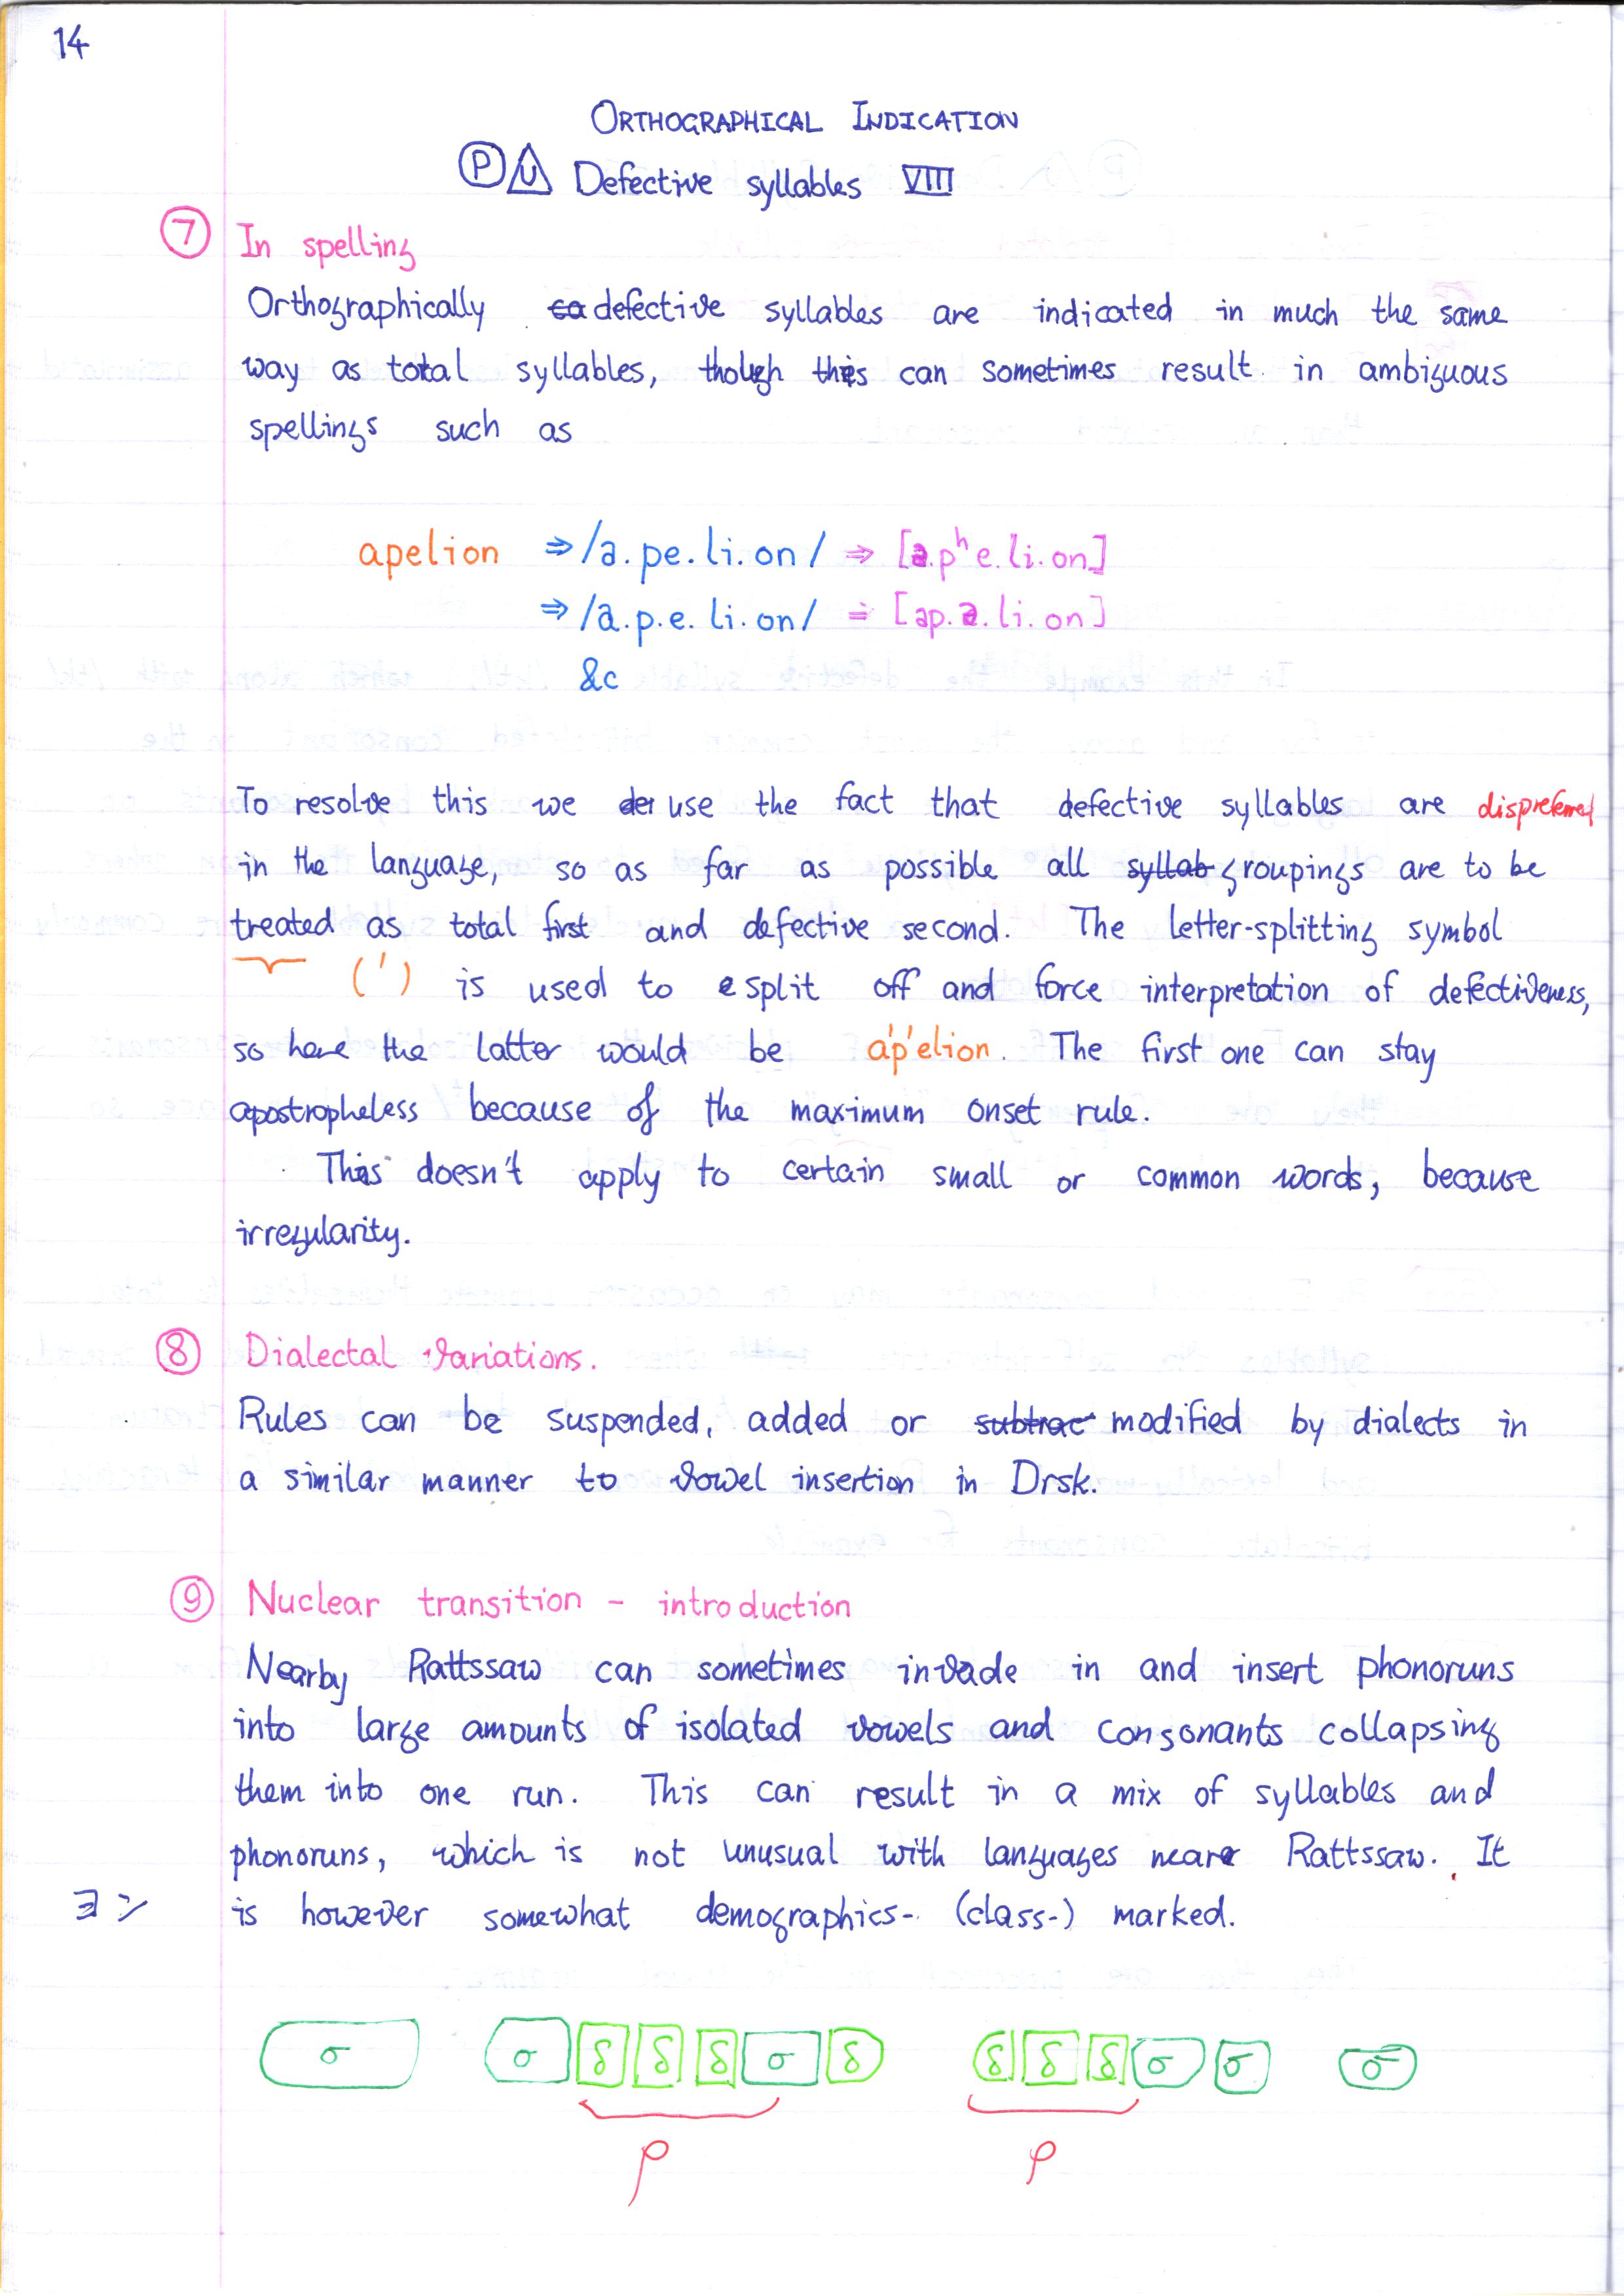 14
ORTHOGRAPHICAL INDICATION
P U Defective syllables VIII
7 In spelling
Orthographically ca defective syllables are indicated in much the same
way as total syllables, though this can sometimes result in ambiguous
spellings such as
apelion ⇒ /a.pe.li.on/ ⇒ [a.pʰe.li.on]
⇒ /a.p.e.li.on/ ⇒ [ap.ə.li.on]
&c
To resolve this we use the fact that defective syllables are dispreferred
in the language, so as far as possible all syllab groupings are to be
treated as total first and defective second. The letter-splitting symbol
(') is used to split off and force interpretation of defectiveness,
so here the latter would be a'p'elion. The first one can stay
apostropheless because of the maximum onset rule.
This doesn't apply to certain small or common words, because
irregularity.
8 Dialectal variations.
Rules can be suspended, added or subtrac modified by dialects in
a similar manner to vowel insertion in Drsk.
9 Nuclear transition - introduction
Nearby Rattssaw can sometimes invade in and insert phonoruns
into large amounts of isolated vowels and consonants collapsing
them into one run. This can result in a mix of syllables and
phonoruns, which is not unusual with languages near Rattssaw. It
is however somewhat demographics- (class-) marked.
σ σ δ δ δ σ δ δ δ δ σ σ σ
ρ ρ